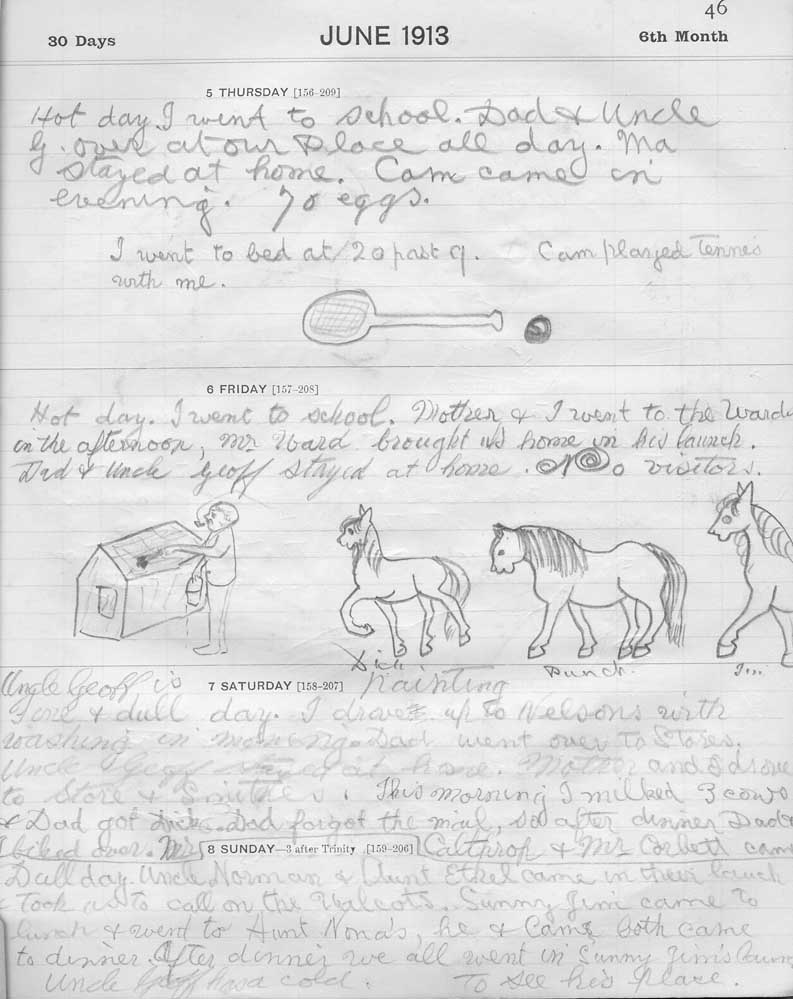 46
30 Days JUNE 1913 6th Month
5 THURSDAY [156-209]
Hot day. I went to school. Dad & Uncle
G. over at our place all day. Ma
stayed at home. Cam came in
evening. 70 eggs.
I went to bed at 20 past 9. Cam played Tennis
with me.
6 FRIDAY [157-208]
Hot day. I went to school. Mother & I went to the Wards
in the afternoon, Mr Ward brought us home in his launch.
Dad & Uncle Geoff stayed at home. No visitors.
Dick Punch. Jim
Uncle Geoff is 7 SATURDAY [158-207] Painting
Fine & dull day. I drove up to Nelsons with
washing in morning. Dad went over to Stores.
Uncle Geoff stayed at home. Mother and I drove
to Store & This morning I milked 3 cows
& Dad got Dad forgot the mail, so after dinner Dad &
I biked over. Mrs 8 SUNDAY—3 after Trinity [159-206] Calthrop & Mr Corbett came
Dull day. Uncle Norman & Aunt Ethel came in their launch
& took us to call on the Walcots. Sunny Jim came to
lunch & went to Aunt Nona's, he & Cam both came
to dinner. After dinner we all went in Sunny Jim's launch
Uncle Geoff has a cold. To see his place.